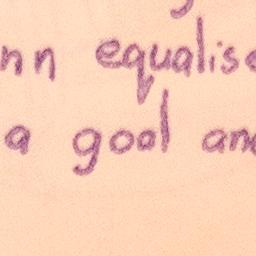 nn equalise
a goal and